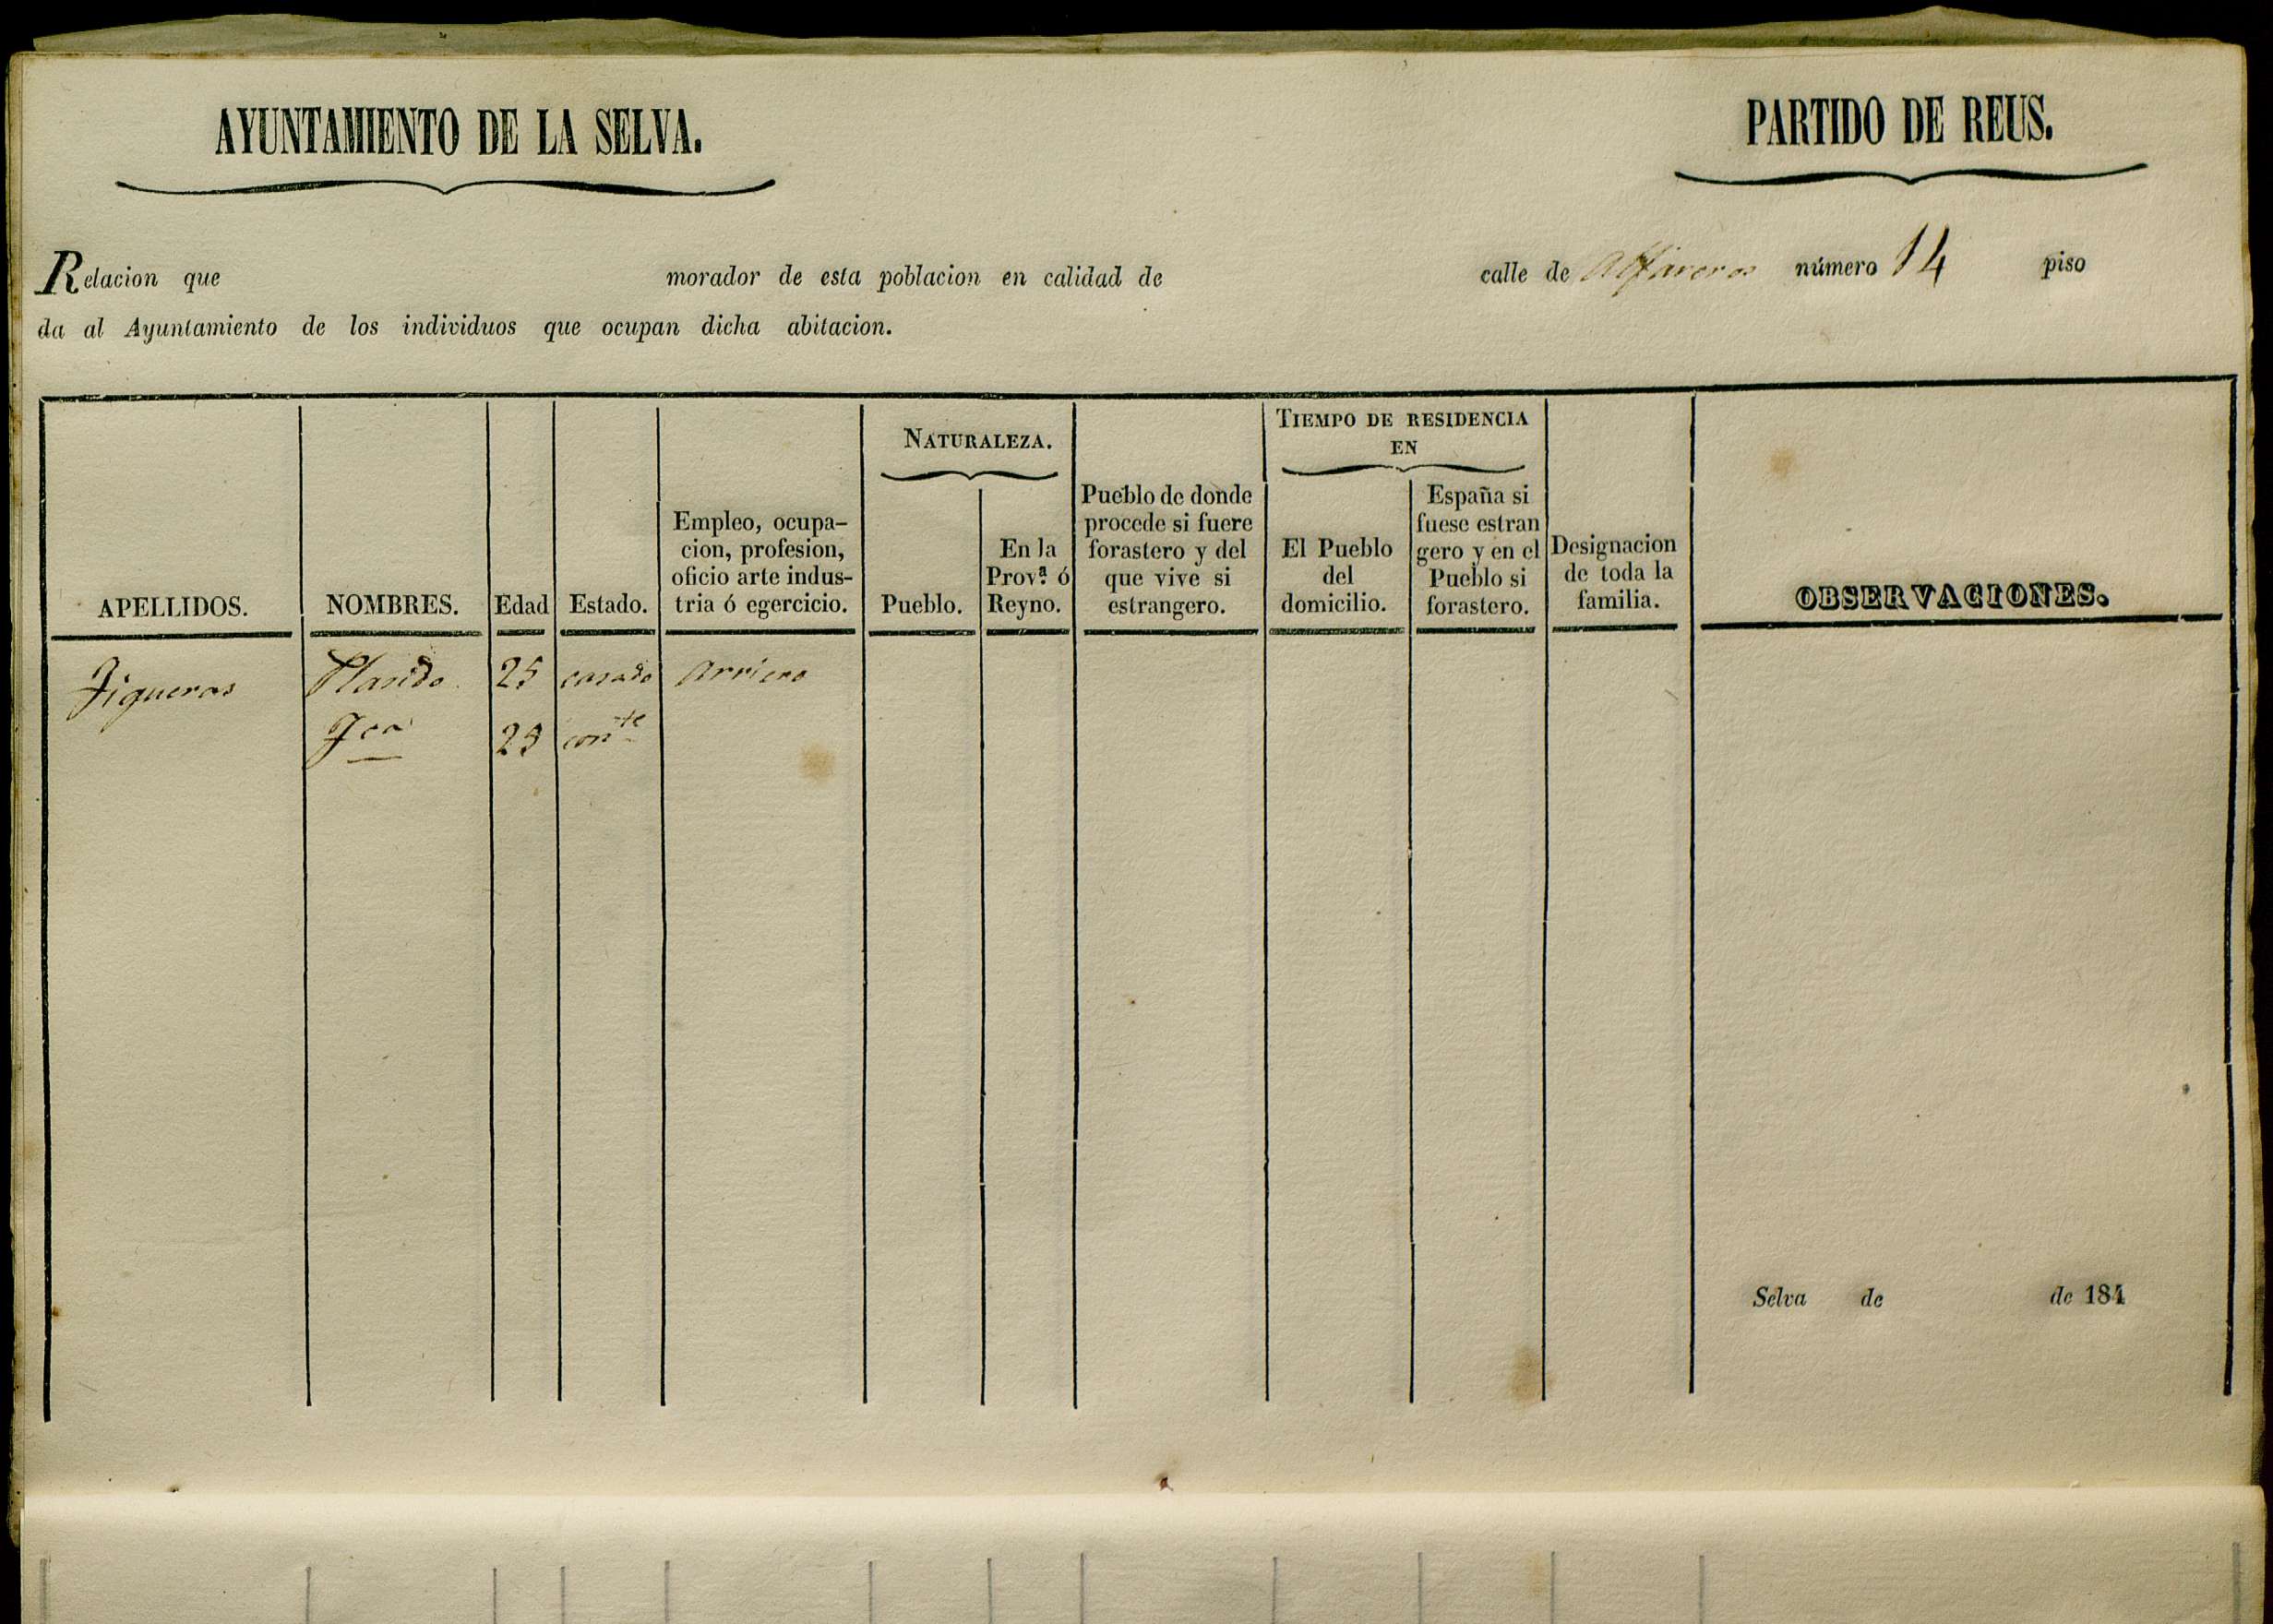 AYUNTAMIENTO DE LA SELVA.
PARTIDO DE REUS.
Relacion que morador de esta poblacion en calidad de calle de Alfareros número 14 piso
da al Ayuntamiento de los individuos que ocupan dicha abitacion.
APELLIDOS.
NOMBRES.
Edad
Estado.
Empleo, ocupa-
cion, profesion,
oficio arte indus-
tria ó egercicio.
NATURALEZA.
Pueblo.
En la
Prov.ª ó
Reyno.
Pueblo de donde
procede si fuere
forastero y del
que vive si
estrangero.
TIEMPO DE RESIDENCIA
EN
El Pueblo
del
domicilio.
España si
fuese estran
gero y en el
Pueblo si
forastero.
Designacion
de toda la
familia.
OBSERVACIONES.
Figueras Plasido 25 casado Arriero
Fca 25 conte
Selva de de 184